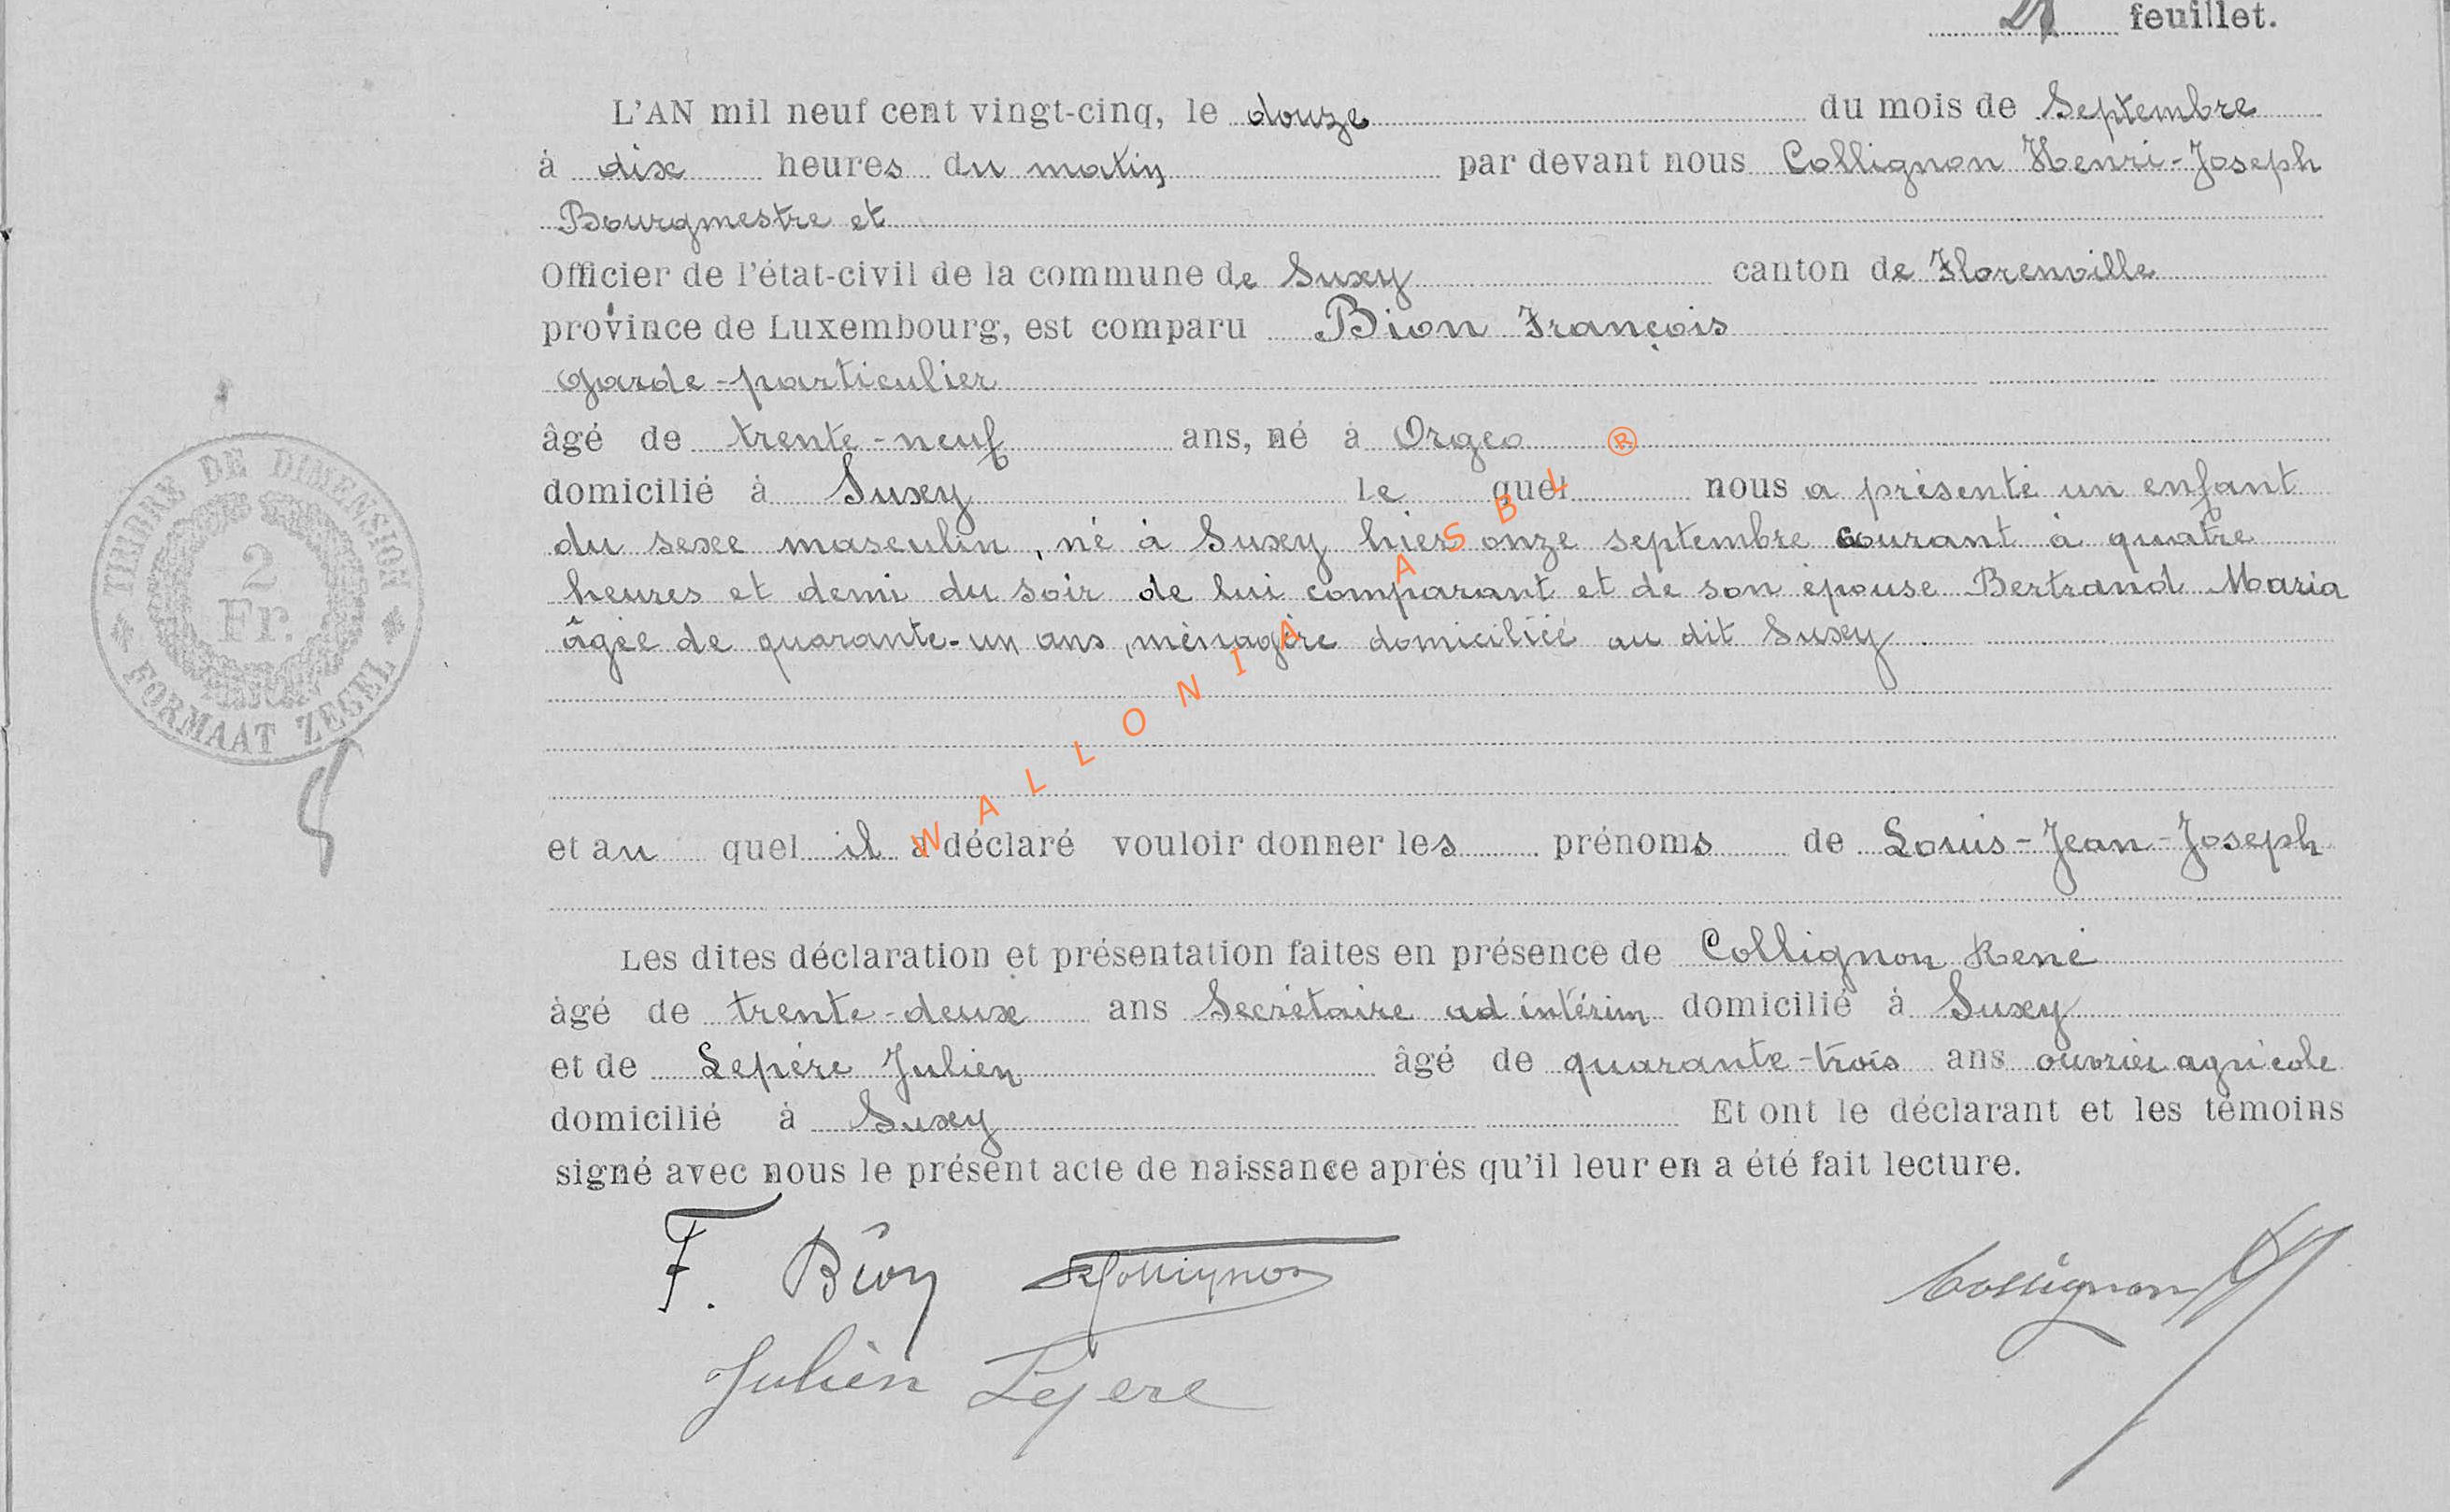 feuillet.
L'AN mil neuf cent vingt-cinq, le douze du mois de Septembre
à dix heures du matin par devant nous Collignon Henri-Joseph
Bourgmestre et
Officier de l'état-civil de la commune de Suxy canton de Florenville
province de Luxembourg, est comparu Bion François
Garde-particulier
âgé de trente-neuf ans, né à Orgeo
domicilié à Suxy le quel nous a présenté un enfant
du sexe masculin, né à Suxy hier onze septembre courant à quatre
heures et demi du soir de lui comparant et de son épouse Bertrand Maria
âgée de quarante-un ans, ménagère domiciliée au dit Suxy.
et au quel il a déclaré vouloir donner les prénoms de Louis-Jean-Joseph
Les dites déclaration et présentation faites en présence de Collignon René
âgé de trente-deux ans Secrétaire ad intérim domicilié à Suxy
et de Lepére Julien âgé de quarante-trois ans ouvrier agricole
domicilié à Suxy Et ont le déclarant et les témoins
signé avec nous le présent acte de naissance après qu'il leur en a été fait lecture.
F. Bion RCollignon Collignon
Julien Lepere
TIMBRE DE DIMENSION
2
Fr.
FORMAAT ZEGEL
WALLONIA ASBL ®